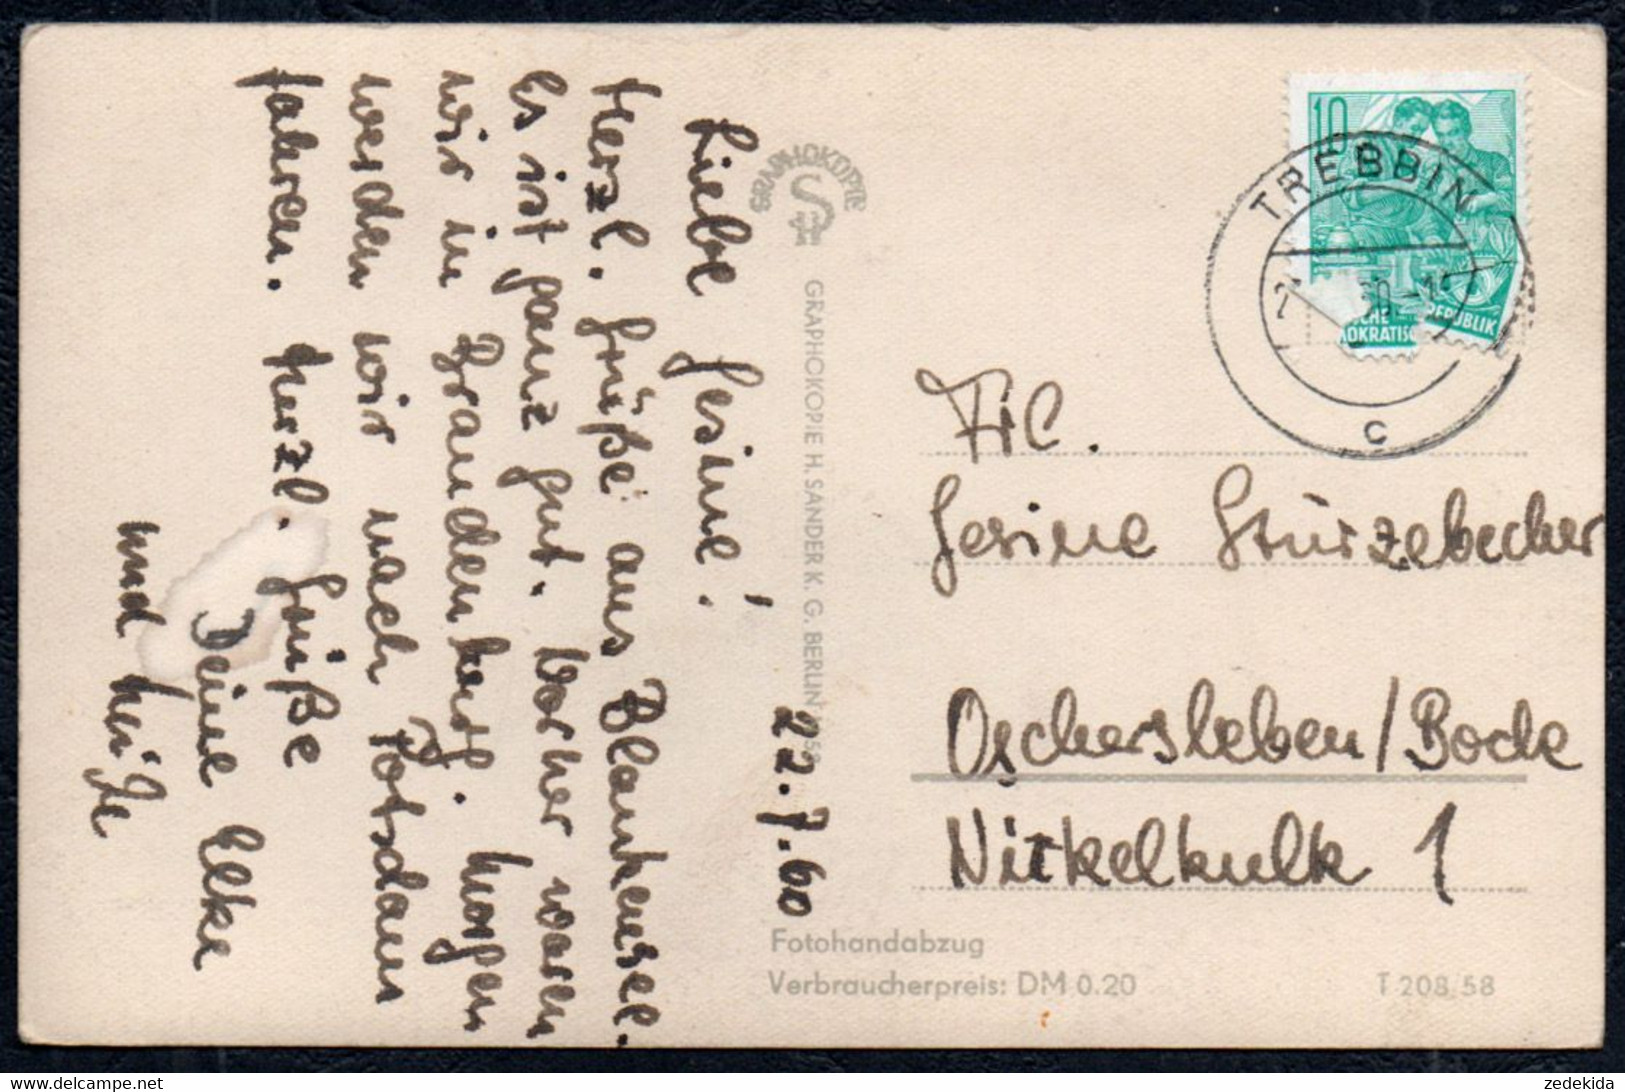 22.7.60
Liebe Gesine!
Herzl. Grüße aus Blankensee.
Es ist ganz gut. Vorher waren
wir in Brandenburg. Morgen
werden wir nach Potsdam
fahren. Herzl. Grüße
Deine Elke
und
GRAPHOKOPIE
GRAPHOKOPIE H. SANDER K. G. BERLIN
10
TREBBIN
C
REPUBLIK
Frl.
Gesine Sturzebecher
Oschersleben/Bode
Nickelkulk 1
Fotohandabzug
Verbraucherpreis: DM 0.20
T 208 58
zedekida